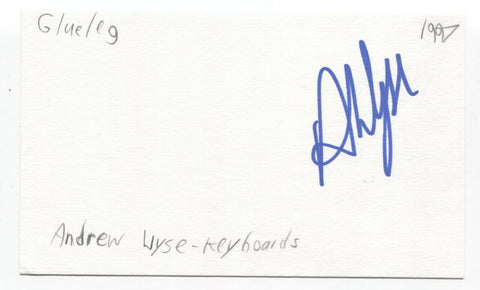 Glueleg 1997
Andrew Wyse-Keyboards